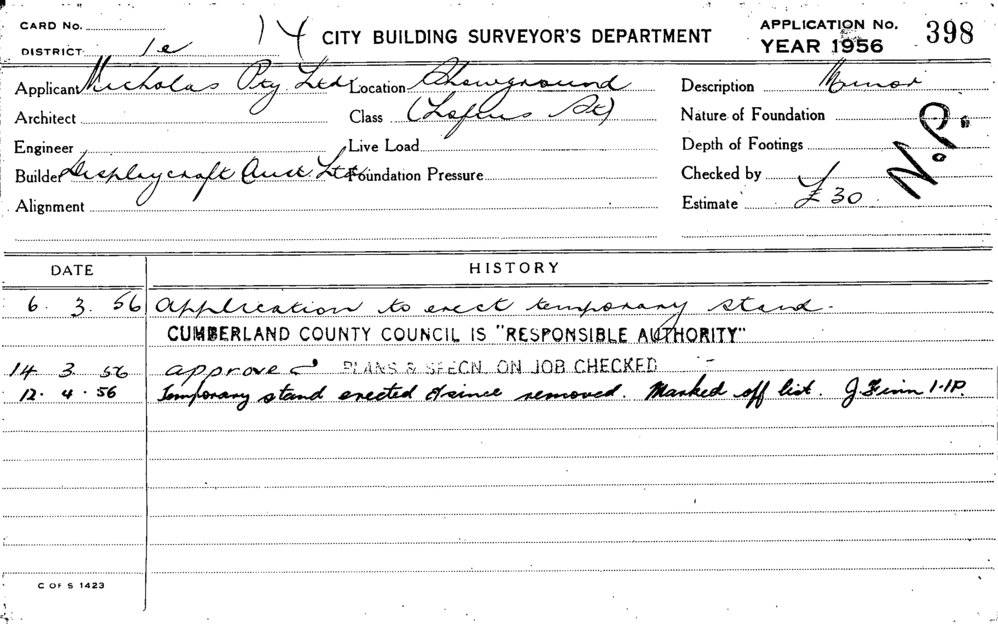 CARD No. 14 CITY BUILDING SURVEYOR'S DEPARTMENT APPLICATION No. 398
DISTRICT 1e YEAR 1956
Applicant Nicholas Pty Ltd Location Showground Description Minor
Architect Class (Loftus St) Nature of Foundation
Engineer Live Load Depth of Footings N.P.
Builder Displaycraft Aust Ltd Foundation Pressure Checked by
Alignment Estimate £30
DATE HISTORY
6. 3. 56 Application to erect temporary stand.
CUMBERLAND COUNTY COUNCIL IS "RESPONSIBLE AUTHORITY"
14 3 56 approved PLANS & SPECN. ON JOB CHECKED
12. 4. 56 Temporary stand erected & since removed. Marked off list. J Finn
C OF S 1423